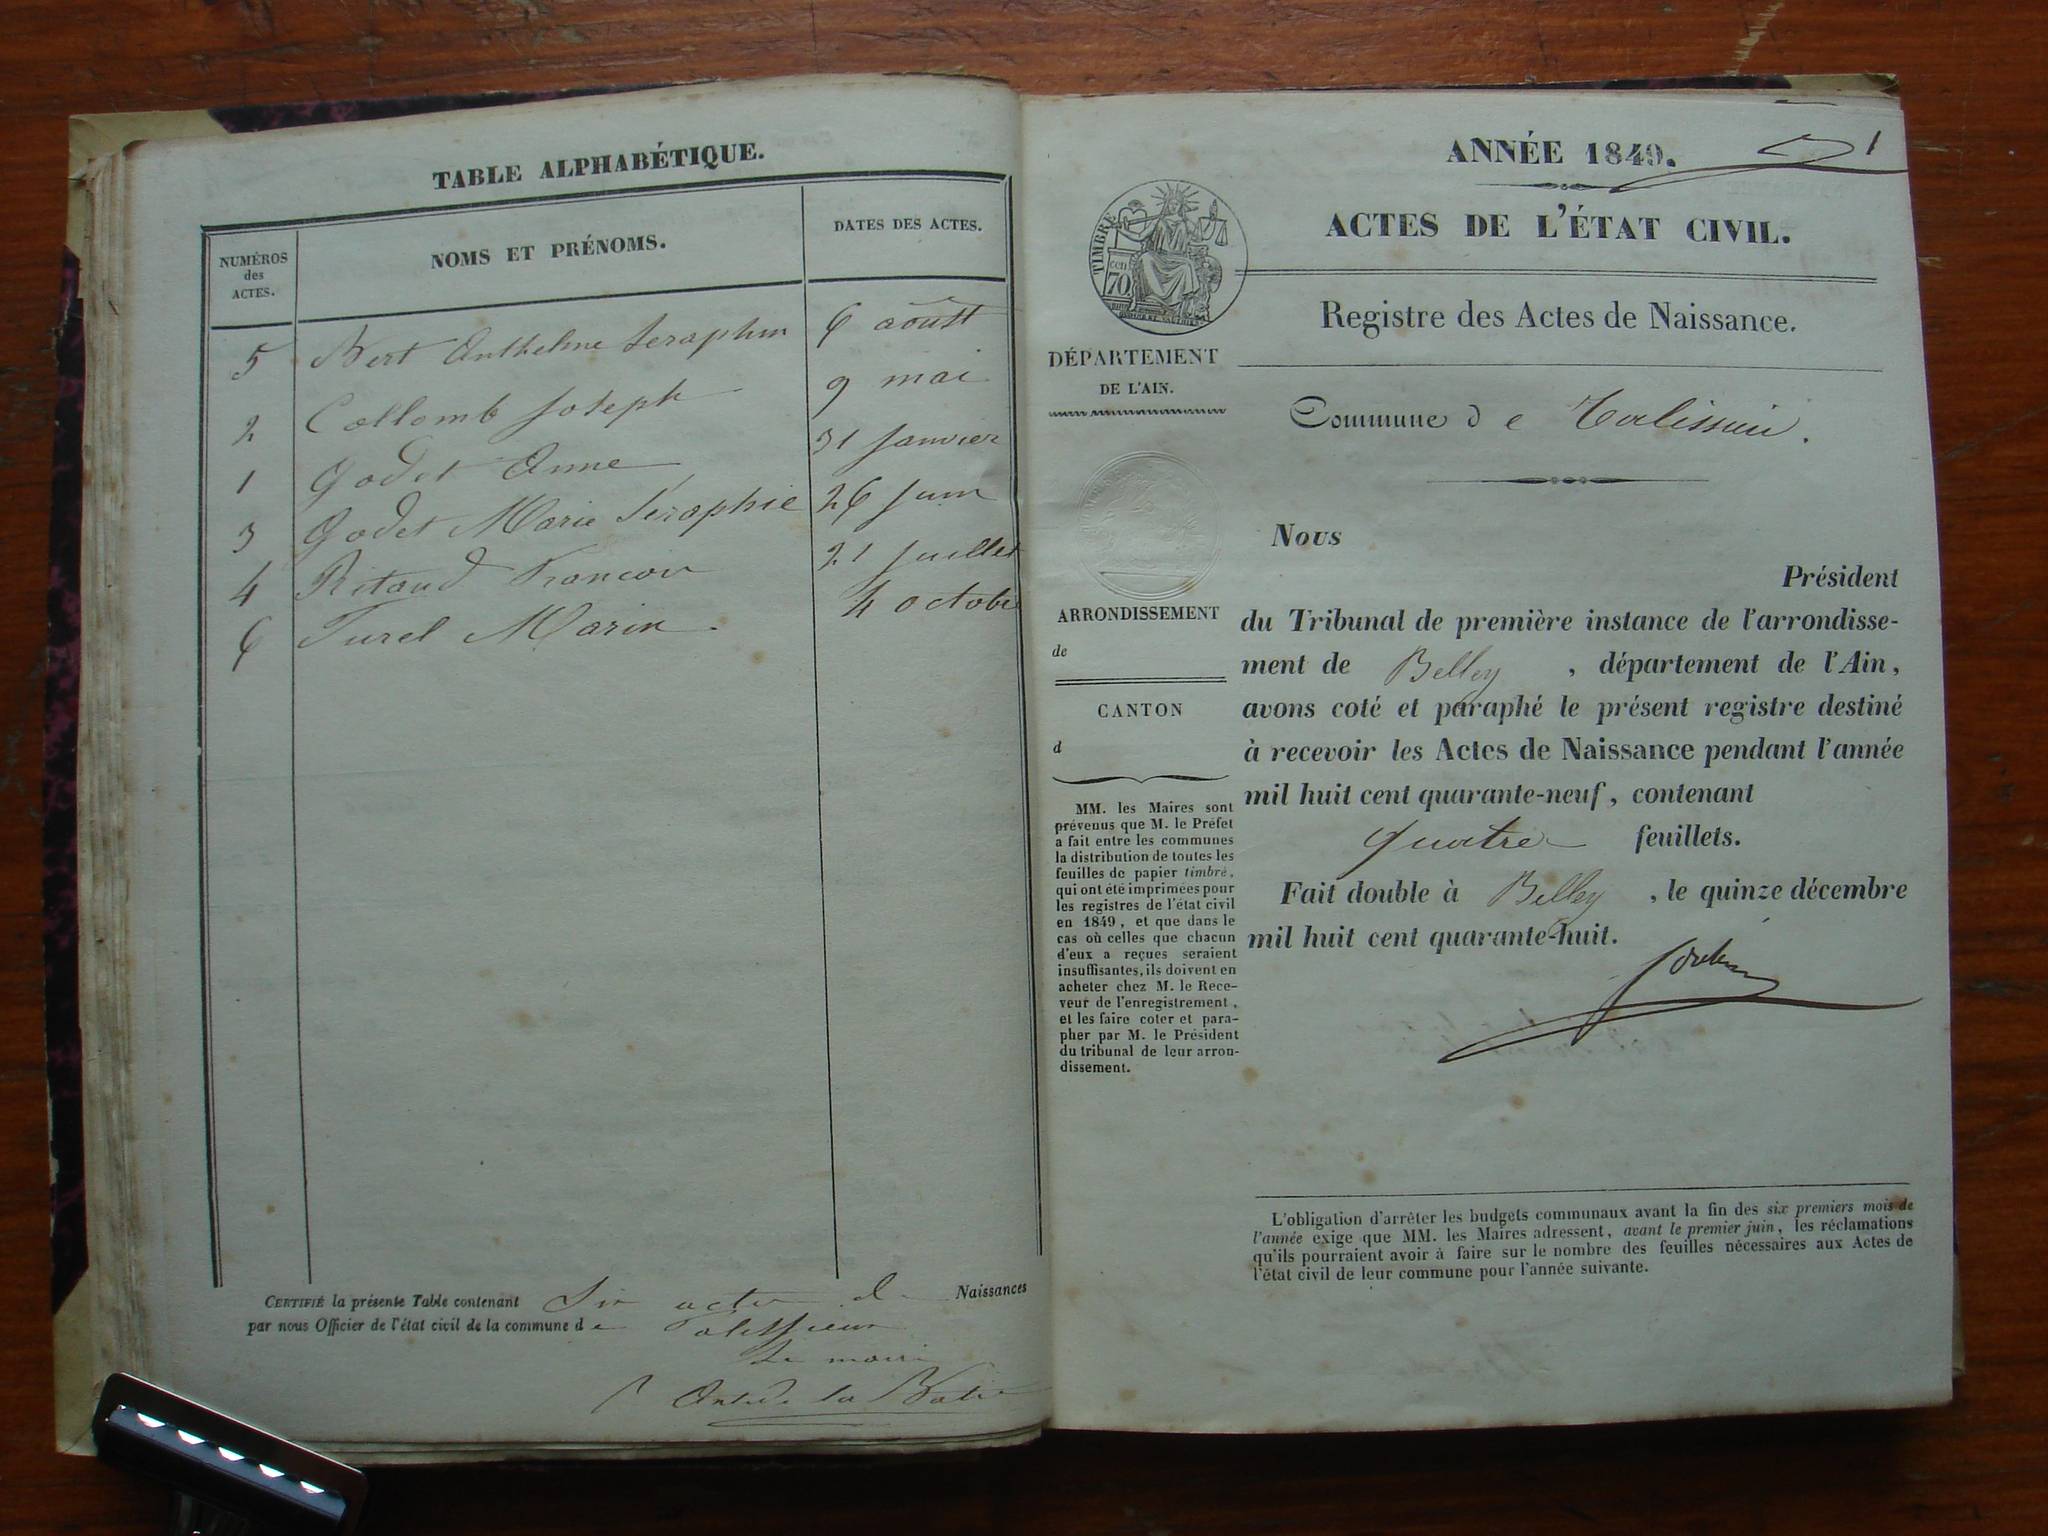 TABLE ALPHABÉTIQUE.
NUMÉROS
des
ACTES.
NOMS ET PRÉNOMS.
DATES DES ACTES.
5 Bert Anthelme Seraphin 6 aoust
2 Collomb Joseph 9 mai
1 Godet Anne 31 Janvier
3 Godet Marie Séraphie 26 Juin
4 Ritaud Francois 21 Juillet
6 Turel Marin 4 octobre
CERTIFIÉ la présente Table contenant Six actes de Naissances
par nous Officier de l'état civil de la commune de Talissieu
Le maire
ANNÉE 1849.
1
ACTES DE L'ÉTAT CIVIL.
TIMBRE
cen
70
Registre des Actes de Naissance.
DÉPARTEMENT
DE L'AIN.
Commune de Talissieu.
ARRONDISSEMENT
de
CANTON
d
MM. les Maires sont
prévenus que M. le Préfet
a fait entre les communes
la distribution de toutes les
feuilles de papier timbré,
qui ont été imprimées pour
les registres de l'état civil
en 1849, et que dans le
cas où celles que chacun
d'eux a reçues seraient
insuffisantes, ils doivent en
acheter chez M. le Rece-
veur de l'enregistrement,
et les faire coter et para-
pher par M. le Président
du tribunal de leur arron-
dissement.
Nous
Président
du Tribunal de première instance de l'arrondisse-
ment de Belley, département de l'Ain,
avons coté et paraphé le présent registre destiné
à recevoir les Actes de Naissance pendant l'année
mil huit cent quarante-neuf, contenant
quatre feuillets.
Fait double à Belley, le quinze décembre
mil huit cent quarante-huit.
L'obligation d'arrêter les budgets communaux avant la fin des six premiers mois de
l'année exige que MM. les Maires adressent, avant le premier juin, les réclamations
qu'ils pourraient avoir à faire sur le nombre des feuilles nécessaires aux Actes de
l'état civil de leur commune pour l'année suivante.